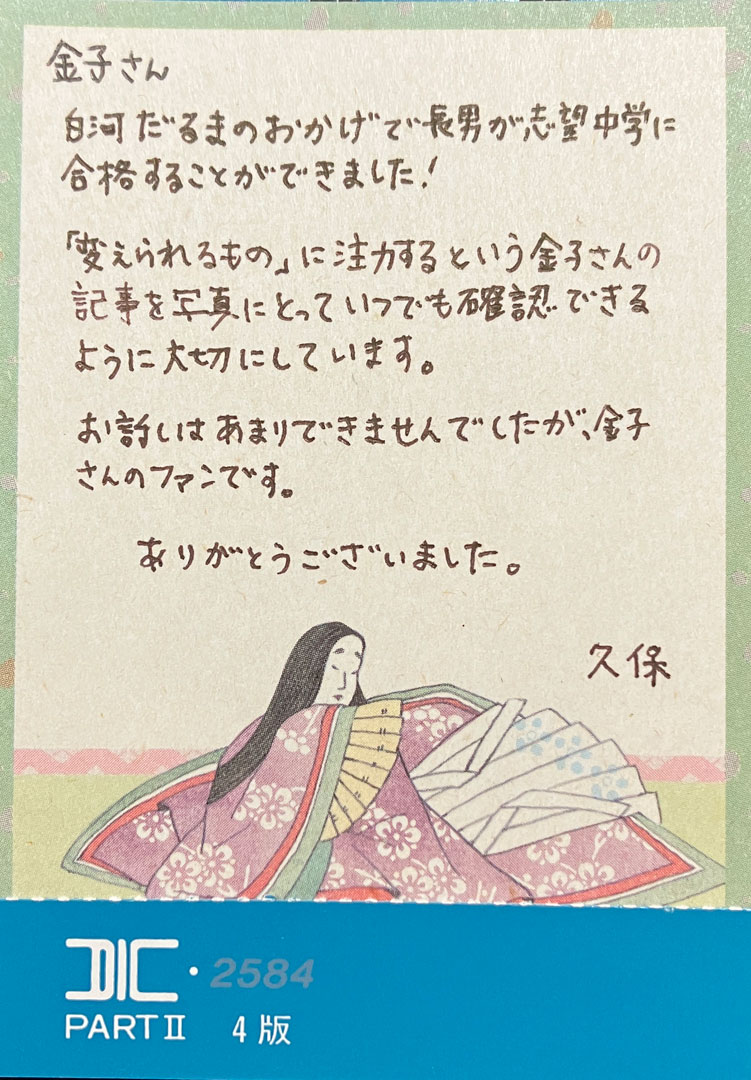 金子さん
白河だるまのおかげで長男が志望中学に
合格することができました!
「変えられるもの」に注力するという金子さんの
記事を写真にとっていつでも確認できる
ように大切にしています。
お話しはあまりできませんでしたが、金子
さんのファンです。
ありがとうございました。
久保
DIC・2584
PART II 4版